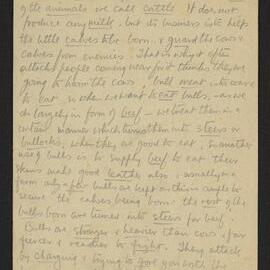 of the animals we call cattle. It does not
produce any milk, but its business is to help
the little calves to be born, & guard the cows &
calves from enemies. That is why it often
attacks people coming near for it thinks they are
going to harm the cows. bull meat is too coarse
to eat, so when we want to eat bulls, as we
do largely in form of beef — we treat them in a
certain manner which turns them into steers or
bullocks, when they are good to eat. So another
use of bulls is to supply beef to eat. Their
skins make good leather also, & usually in a
farm only a few bulls are kept as this is ample to
secure the calves being born. the rest of the
bulls born are turned into steers for beef.
Bulls are stronger & heavier than cows, far
fiercer & readier to fight. They attack
by charging & trying to gore you with the